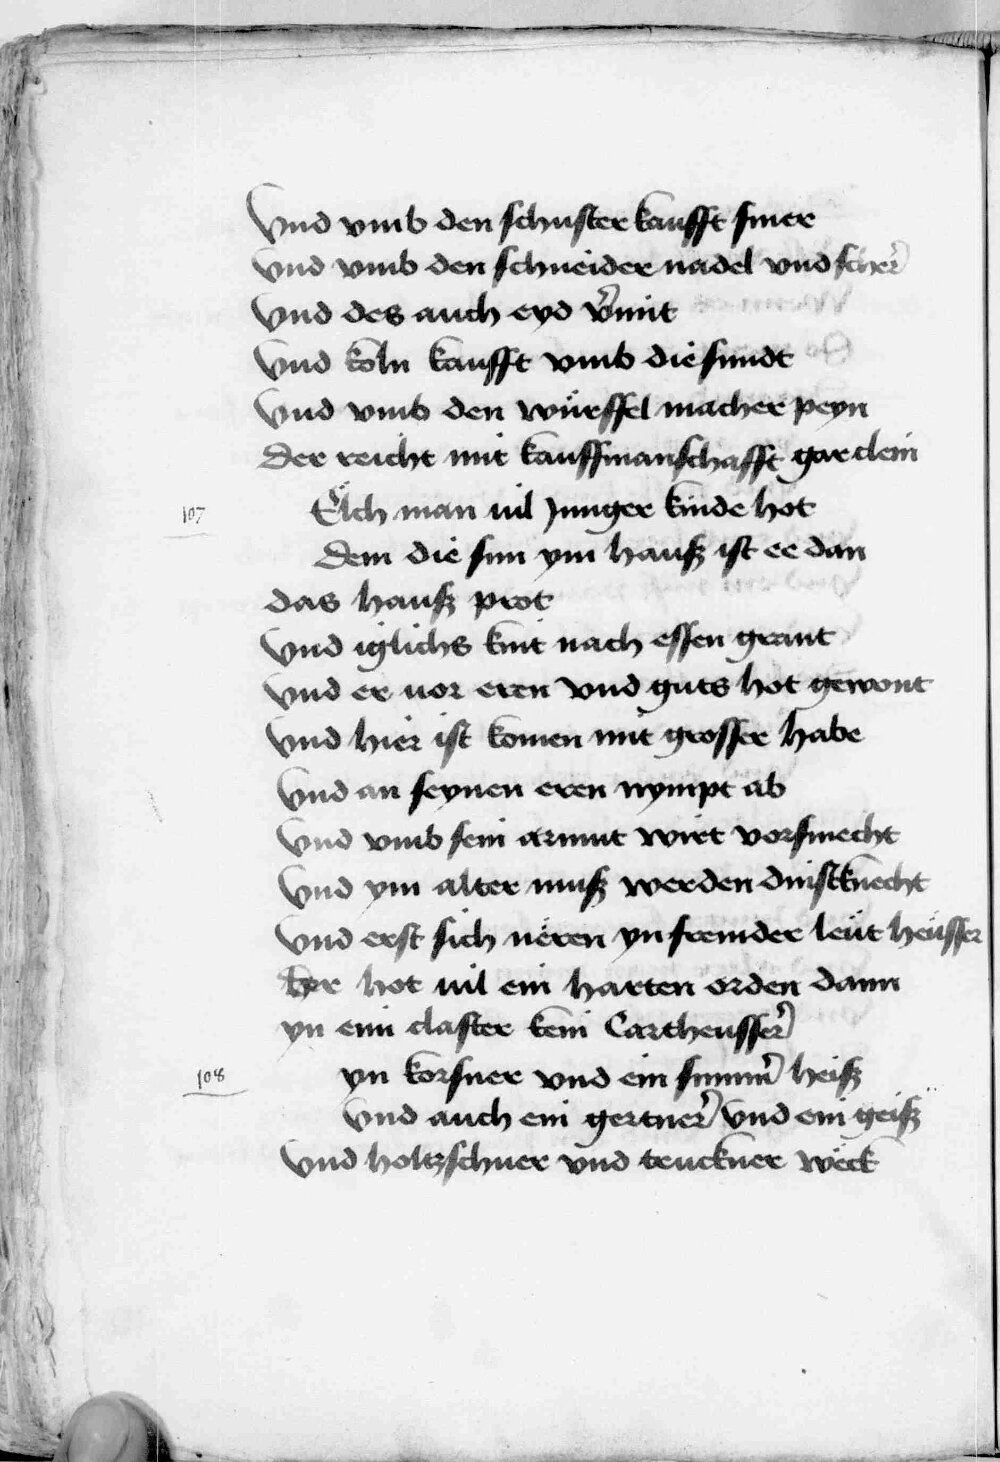 Vnd vmb den schuster kaufft smer
vnd vmb den schneider nadel vnd scher̃
vnd des auch eyd v̉mit
vnd koln kaufft vmb die smidt
vnd vmb den würffel macher peyn
der reicht mit kauffmanschafft gar clein
107 Elch man uil Junger kinde hot
dem die sun ym hausz ist ee dan
das hausz prot
vnd iglichs knit nach essen grant
vnd er uor eren vnd guts hot gewont
vnd hier ist komen mit grosser habe
vnd an seynen eren nympt ab
vnd vmb sein armut wirt vorsmecht
vnd ym alter musz werden dinstknecht
vnd erst sich neren yn fremder leüt heüsser
der hot uil ein harten orden dann
yn eim closter kein Cartheusser̃
108 yn korsner vnd ein summer̃ heisz
vnd auch ein gertner̃ vnd ein geisz
vnd holtzschuer vnd truckner weck